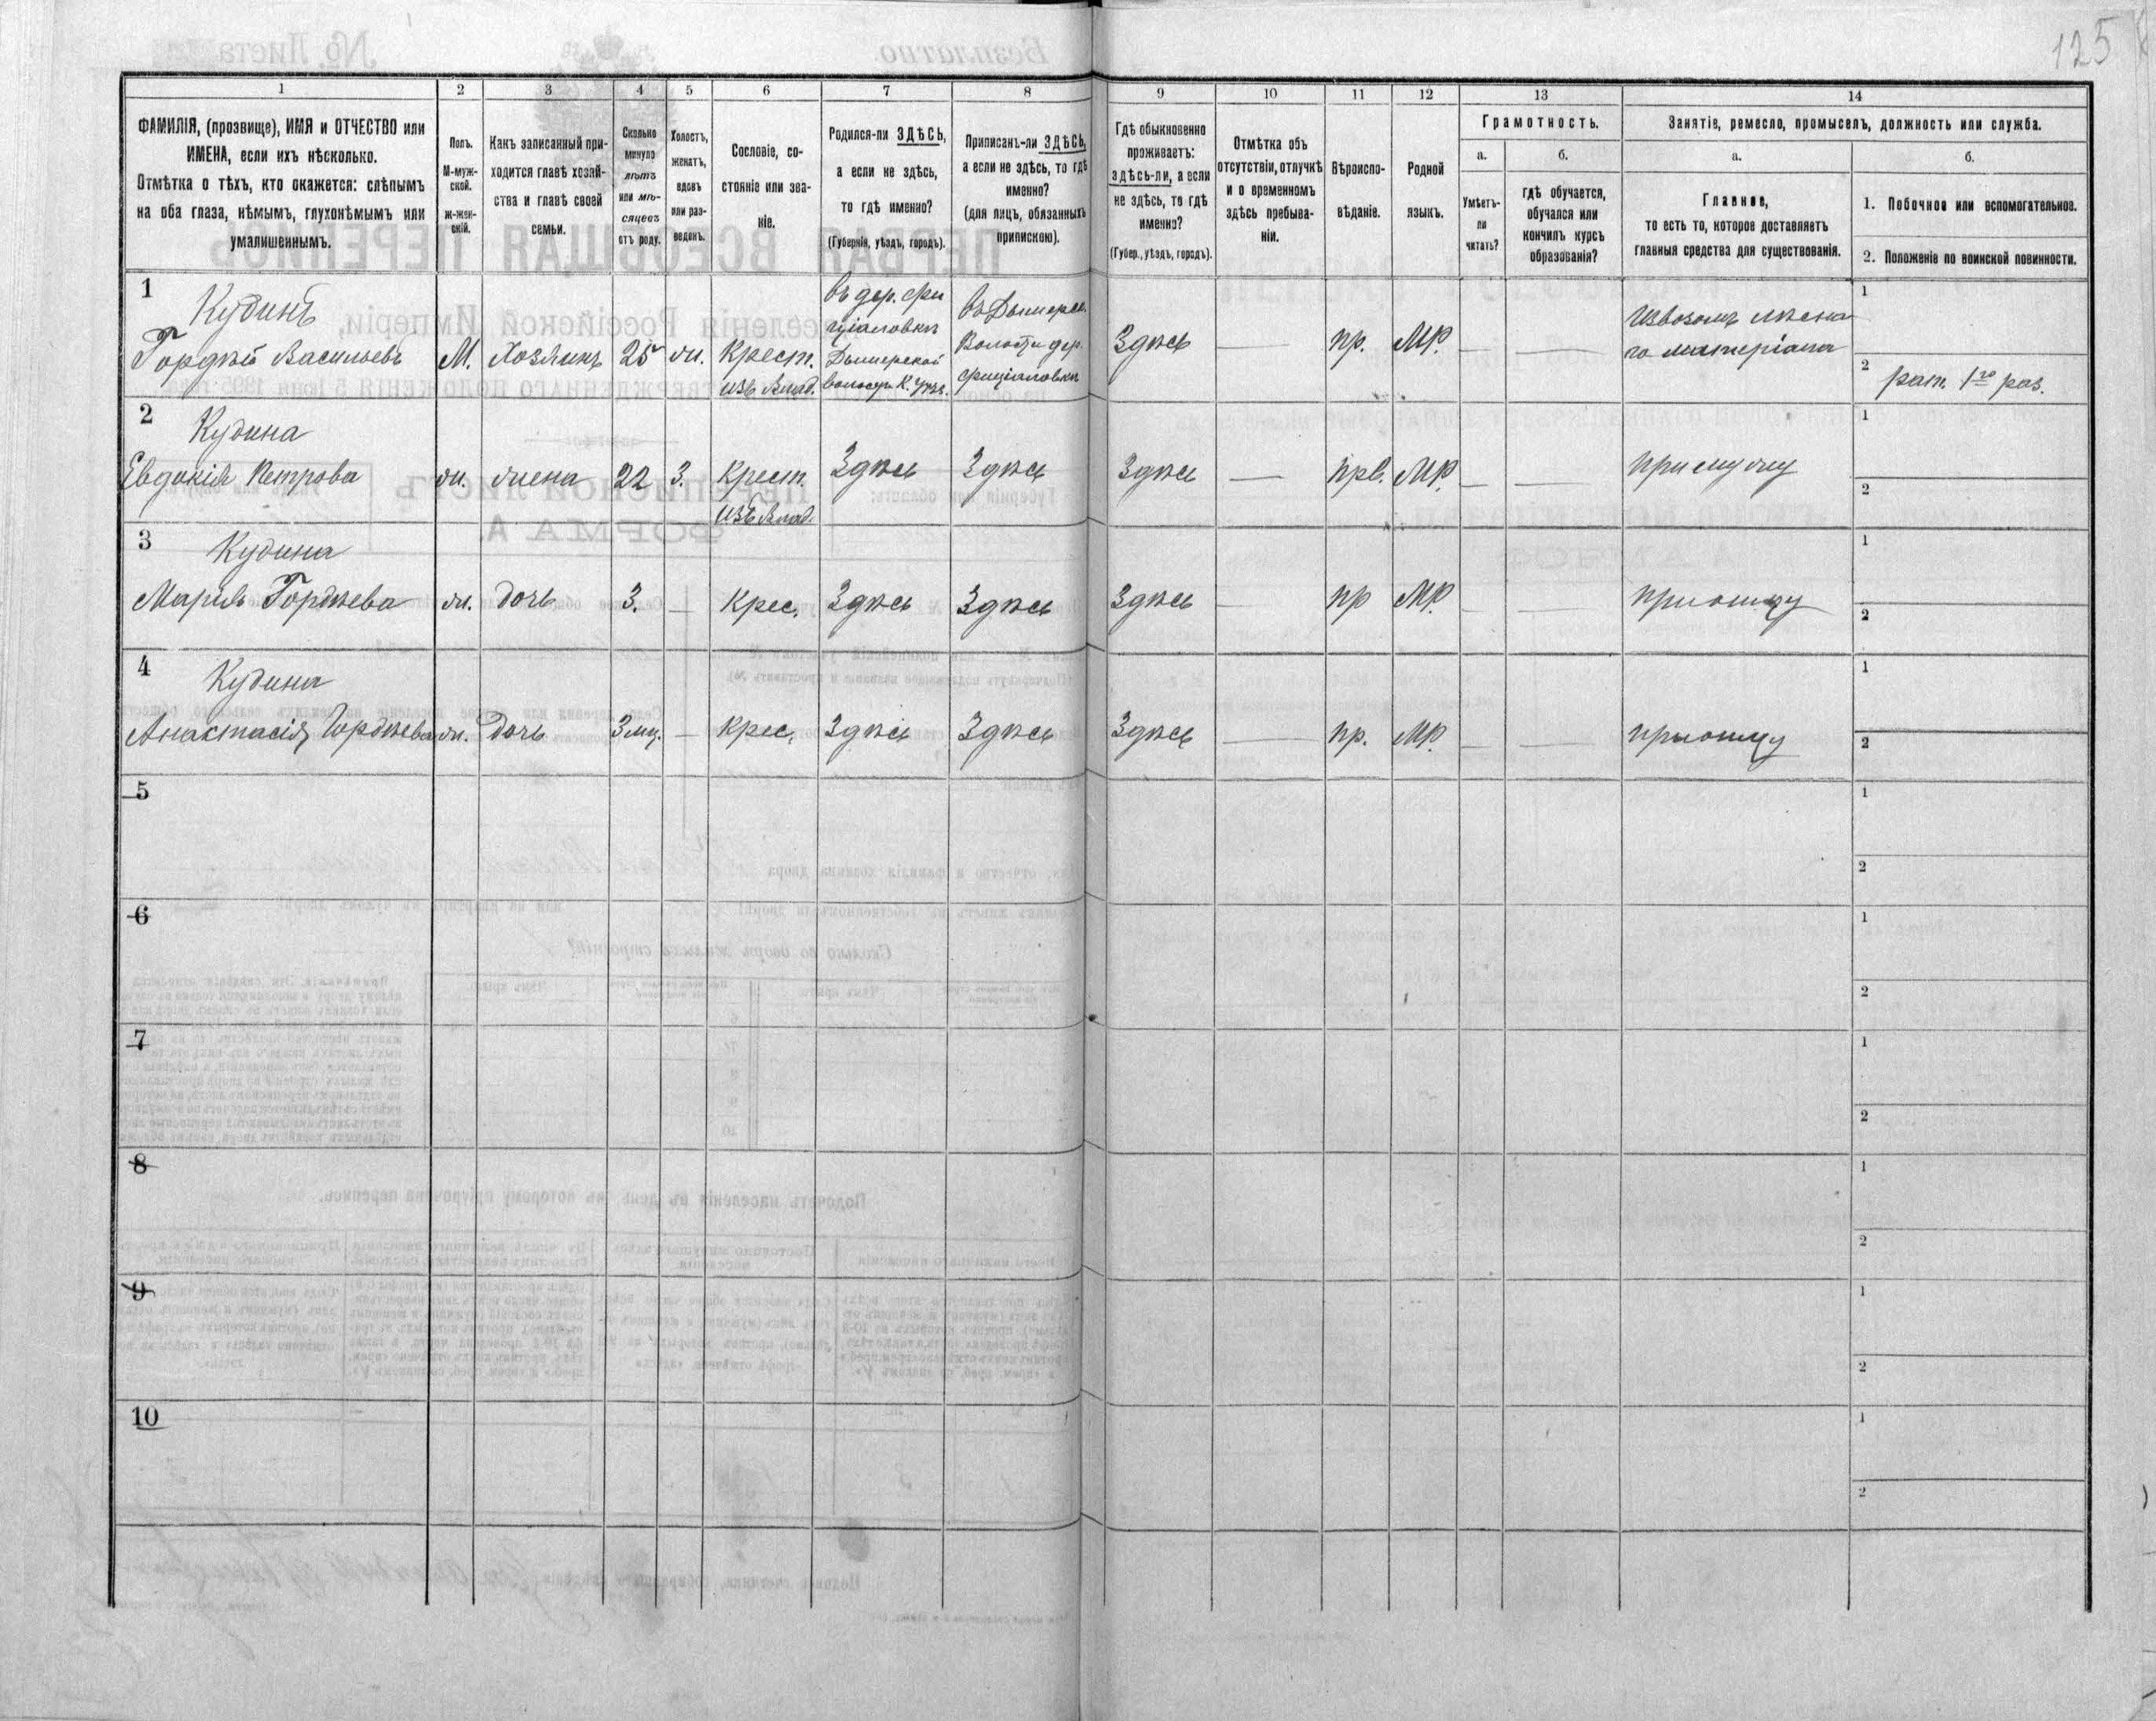 125
1 2 3 4 5 6 7 8 9 10 11 12 13 14
ФАМИЛІЯ, (прозвище), ИМЯ и ОТЧЕСТВО или
ИМЕНА, если ихъ нѣсколько.
Отмѣтка о тѣхъ, кто окажется: слѣпымъ
на оба глаза, нѣмымъ, глухонѣмымъ или
умалишеннымъ.
Полъ.
М-муж-
ской.
ж-жен-
скій.
Какъ записанный при-
ходится главѣ хозяй-
ства и главѣ своей
семьи.
Сколько
минуло
лѣтъ
или мѣ-
сяцевъ
отъ роду.
Холостъ,
женатъ,
вдовъ
или раз-
веденъ.
Сословіе, со-
стояніе или зва-
ніе.
Родился-ли ЗДѢСЬ,
а если не здѣсь,
то гдѣ именно?
(Губернія, уѣздъ, городъ).
Приписанъ-ли ЗДѢСЬ,
а если не здѣсь, то гдѣ
именно?
(для лицъ, обязанныхъ
припискою).
Гдѣ обыкновенно
проживаетъ:
здѣсь-ли, а если
не здѣсь, то гдѣ
именно?
(Губер., уѣздъ, городъ).
Отмѣтка объ
отсутствіи, отлучкѣ
и о временномъ
здѣсь пребыва-
ніи.
Вѣроиспо-
вѣданіе.
Родной
языкъ.
Грамотность.
а.
Умѣетъ-
ли
читать?
б.
гдѣ обучается,
обучался или
кончилъ курсъ
образованія?
Занятіе, ремесло, промыселъ, должность или служба.
а.
Главное,
то есть то, которое доставляетъ
главныя средства для существованія.
б.
1. Побочное или вспомогательное.
2. Положеніе по воинской повинности.
1
Кудинъ
Гордѣй Васильевъ
М.
Хозяинъ
25
ж.
Крест.
изъ влад.
въ дер. Фи
ціаловки
Дымерской
волости К. Уѣз.
въ Дымерск.
Волости дер.
Фиціаловки
Здѣсь
—
пр.
МР.
—
—
Извозомъ лѣсна
го матеріала
1
2
рат. 1го раз.
2
Кудина
Евдокія Петрова
ж.
жена
22
З.
Крест.
изъ влад.
Здѣсь
Здѣсь
Здѣсь
—
прв.
МР.
—
—
при мужу
1
2
3
Кудина
Марія Гордѣева
ж.
дочь
3.
—
Крес.
Здѣсь
Здѣсь
Здѣсь
—
пр
МР.
—
—
при отцу
1
2
4
Кудина
Анастасія Гордѣева
ж.
дочь
3 мц.
—
крес.
Здѣсь
Здѣсь
Здѣсь
—
пр.
МР.
—
—
при отцу
1
2
5
1
2
6
1
2
7
1
2
8
1
2
9
1
2
10
1
2